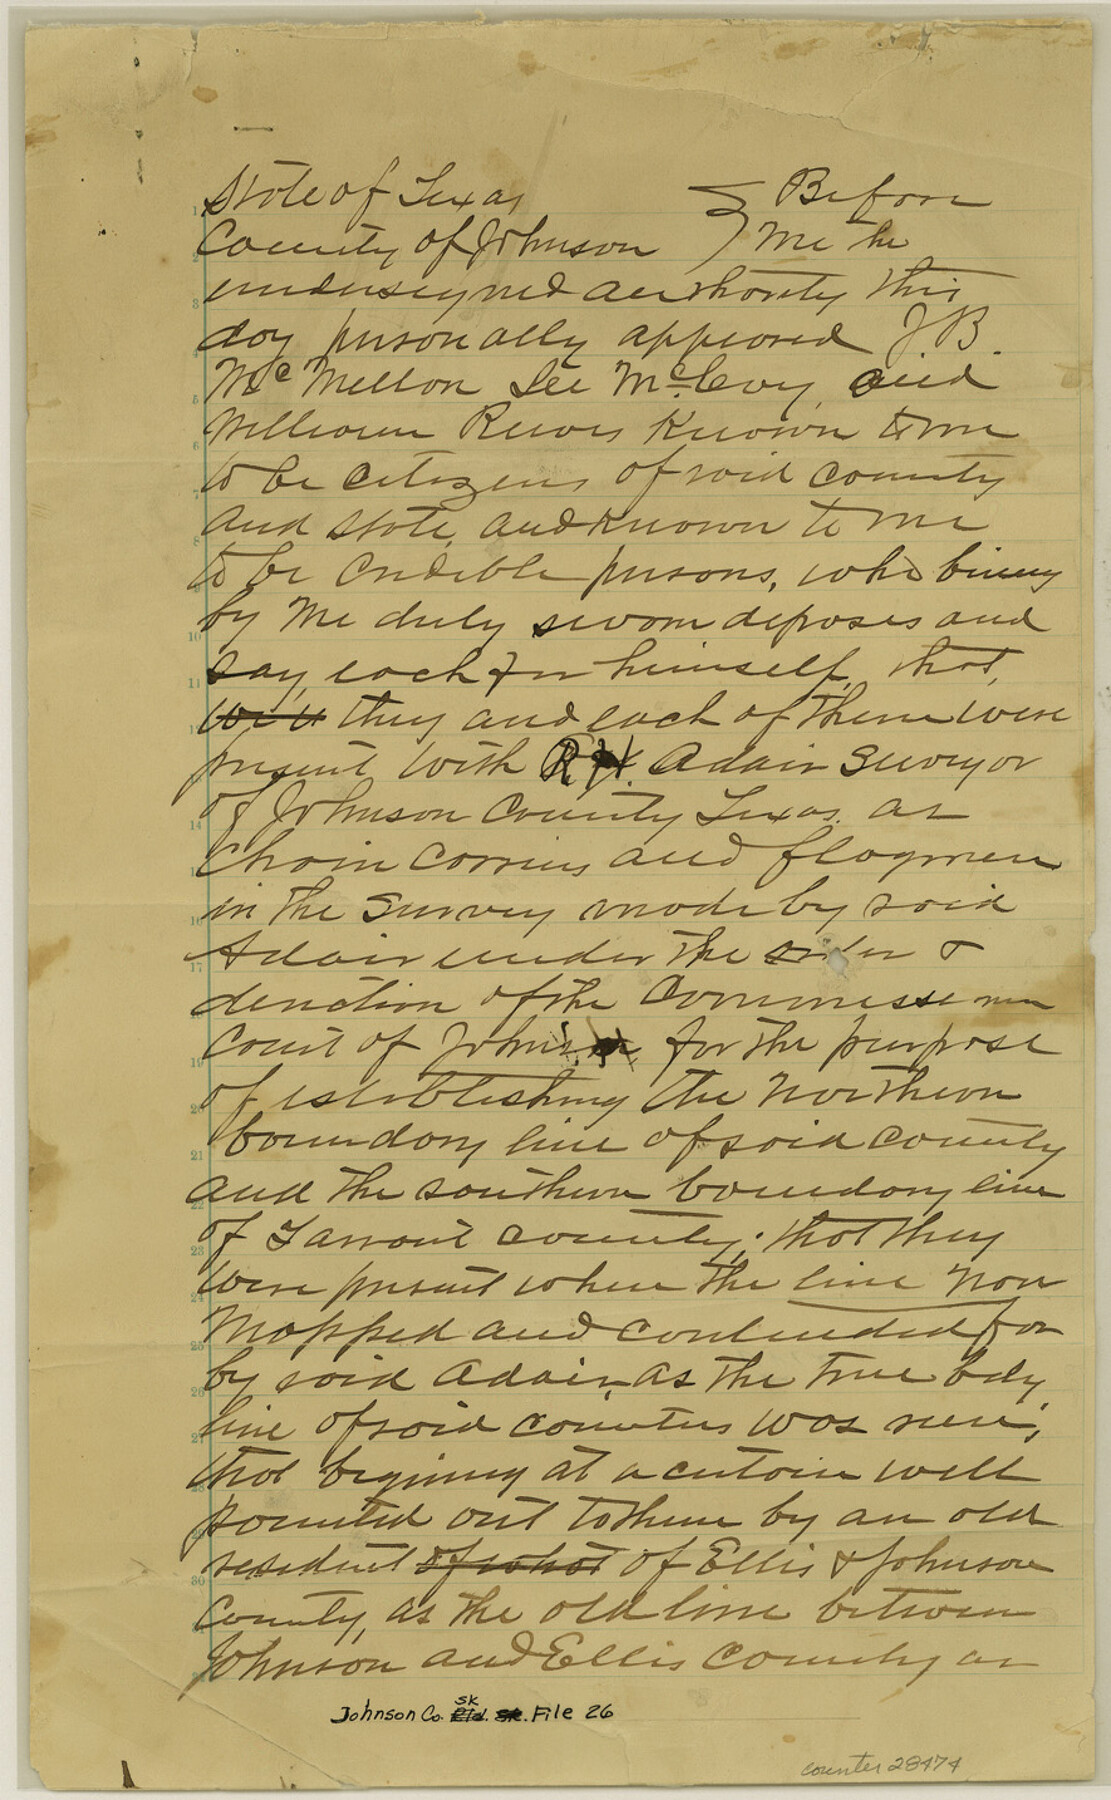 State of Texas } Before
County of Johnson } Me the
undersigned authority this
day personally appeared J B.
McMellon Lee McCovy, and
William Reeves Known to me
to be citizens of said county
and state, and known to me
to be credible persons, who being
by me duly sworn deposes and
say, each for himself, that,
they and each of them were
present with R H. Adair Surveyor
of Johnson County Texas. as
Chain Carriers and flagmen
in the Survey made by said
Adair under the order &
direction of the Commissioners
Court of Johnson for the purpose
of establishing the Northern
boundary line of said county
and the southern boundary line
of Tarrant county; that they
were present when the line now
Mapped and contended for
by said Adair, as the true bdy
line of said counties was run;
that begining at a certain well
pointed out to them by an old
resident of what of Ellis & Johnson
County, as the old line between
Johnson and Ellis County or
Johnson Co. Sk File 26
counter 28474